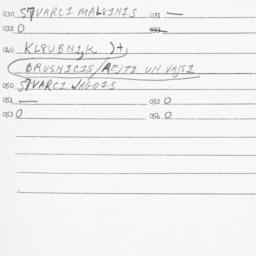 030 STVARCI MALVINIS 033 —
032 O 033
040 KLRUBNIK )+,
BRUSNICIS/AEITI UM VAJSI
050 STVARCI JAGOIS
051 — 052 O
053 O 054 O